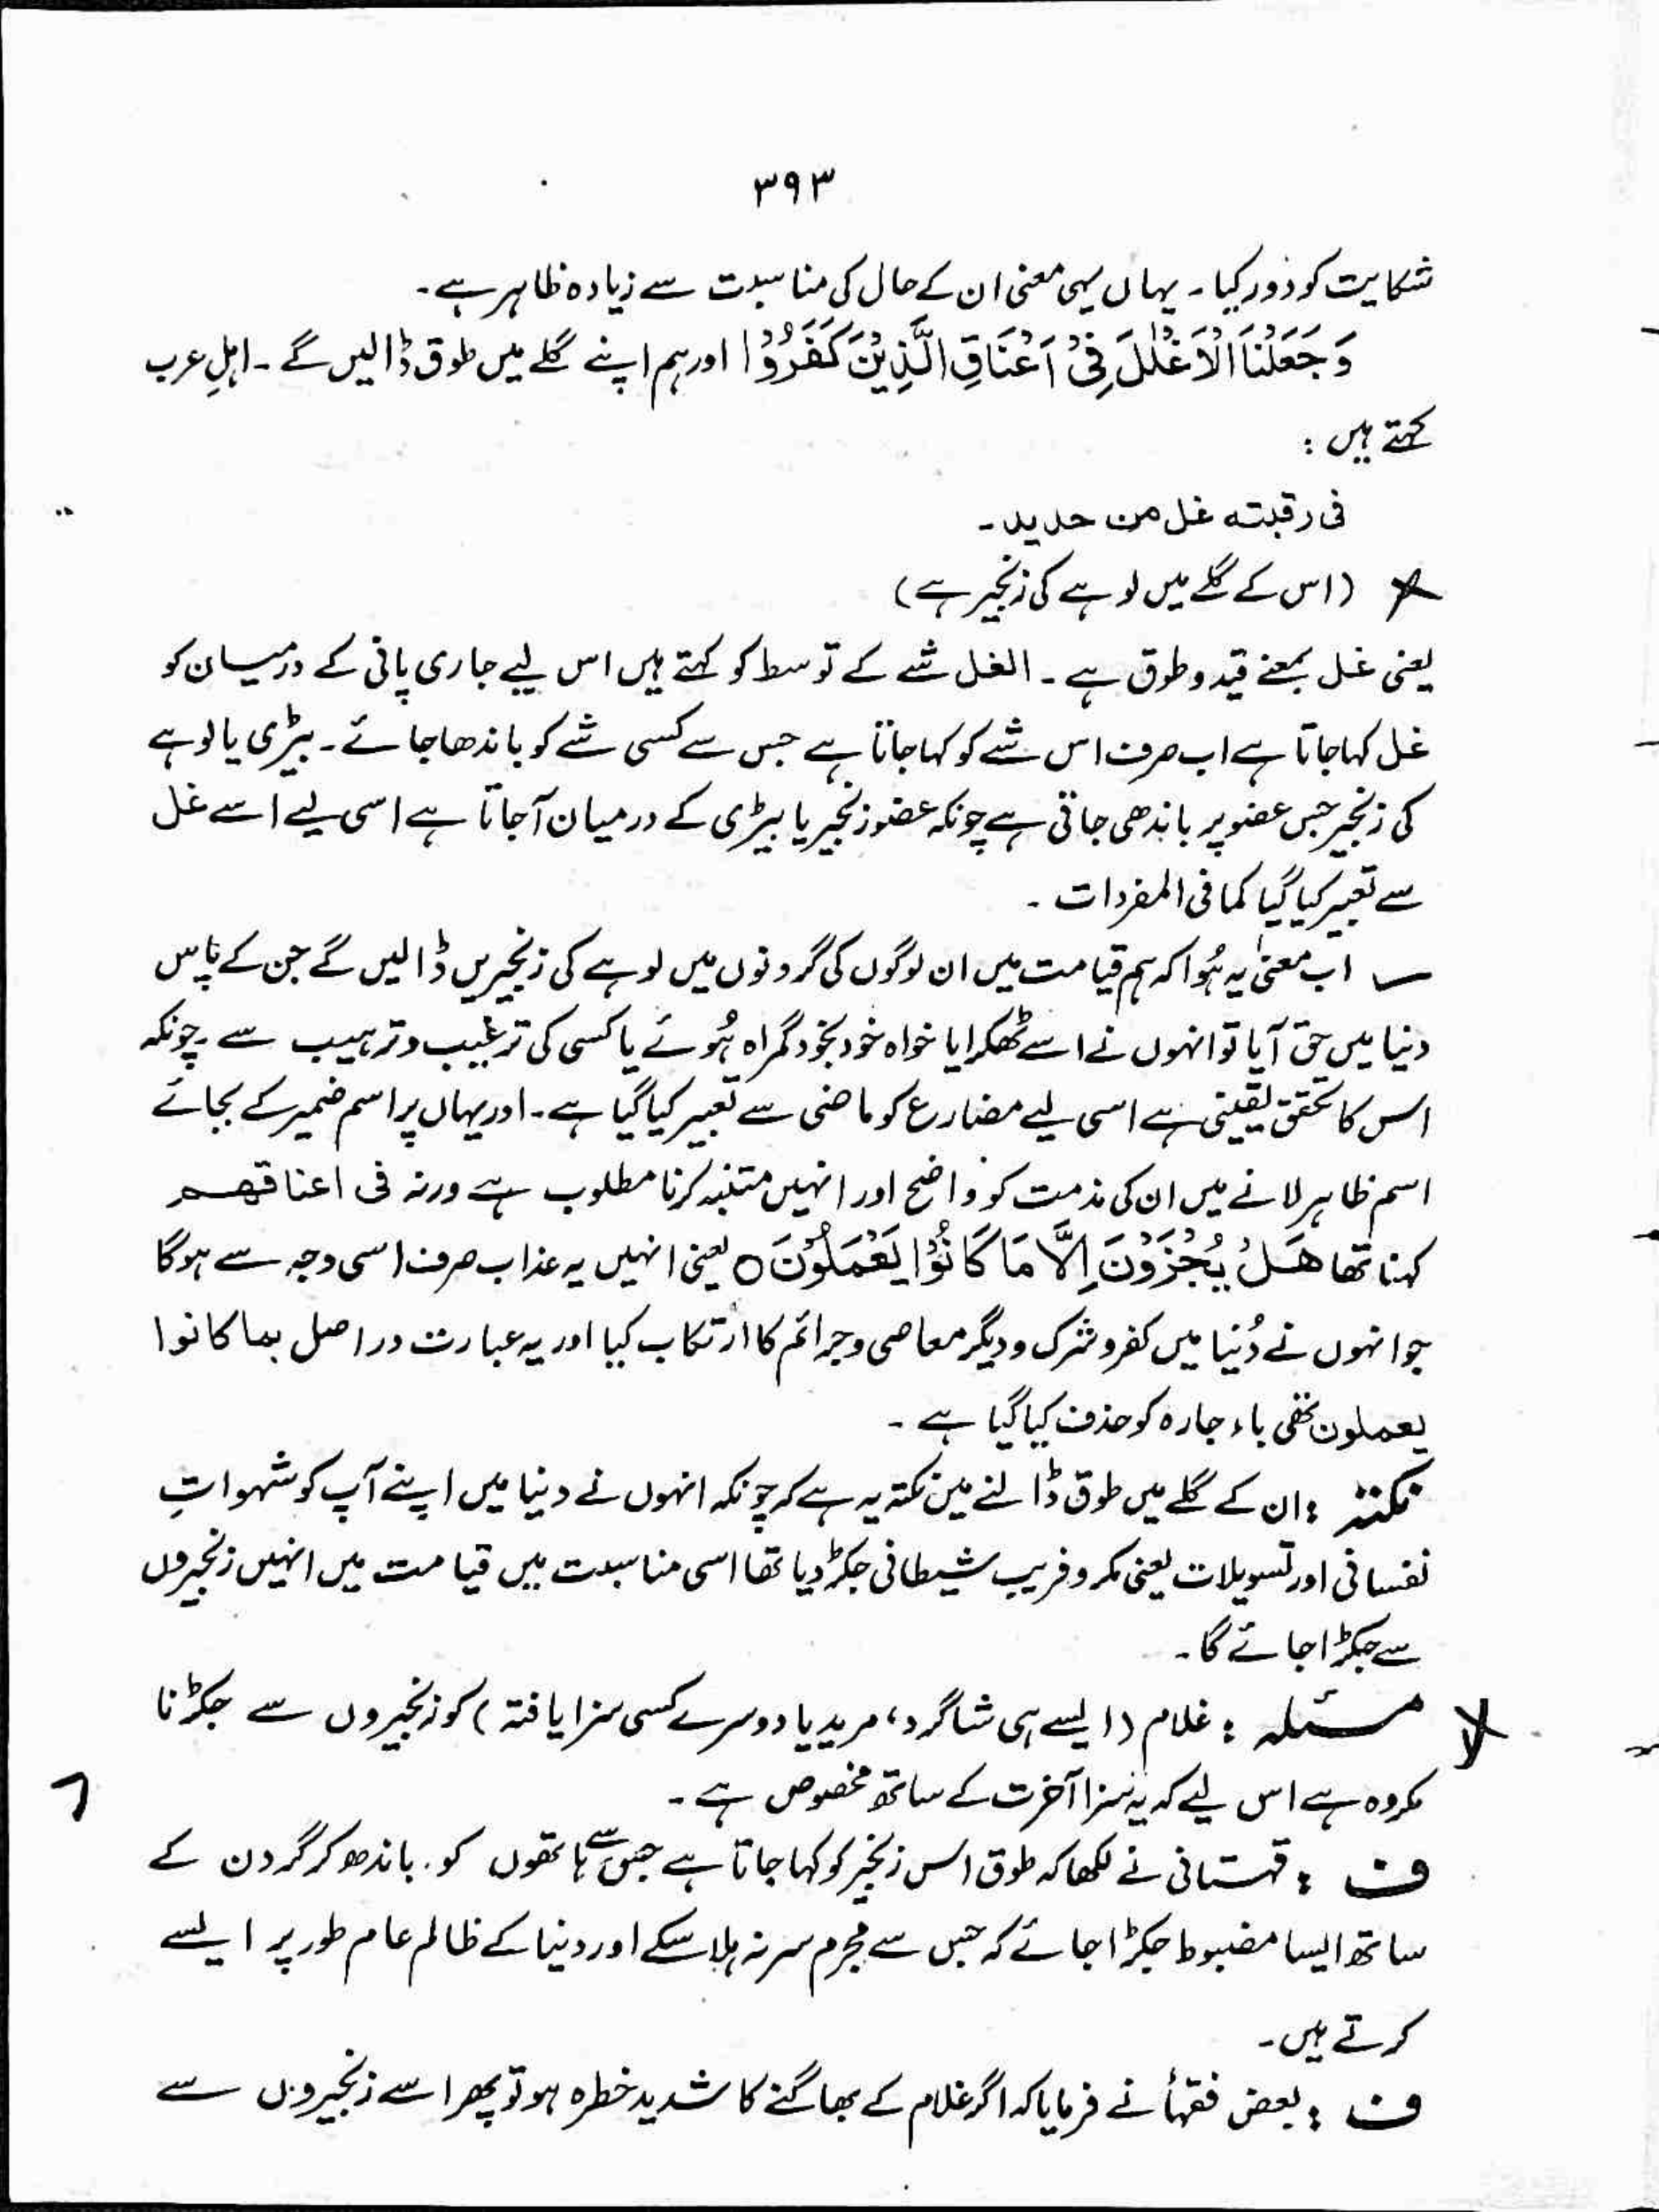 ۳۹۳
شکایت کو دور کیا۔ یہاں یہی معنی ان کے حال کی مناسبت سے زیادہ ظاہر ہے۔
وَجَعَلْنَا الْاَغْلٰلَ فِیْ اَعْنَاقِ الَّذِیْنَ كَفَرُوْا اور ہم اپنے گلے میں طوق ڈالیں گے ۔ اہلِ عرب
کہتے ہیں :
فی رقبتہ غل من حدید۔
(اس کے گلے میں لوہے کی زنجیر ہے)
یعنی غل بمعنے قید و طوق ہے ۔ الغل شے کے توسط کو کہتے ہیں اس لیے جاری پانی کے درمیان کو
غل کہا جاتا ہے اب صرف اس شے کو کہا جاتا ہے جس سے کسی شے کو باندھا جائے۔ بیڑی یا لوہے
کی زنجیر جس عضو پر باندھی جاتی ہے چونکہ عضو زنجیر یا بیڑی کے درمیان آجاتا ہے اسی لیے اسے غل
سے تعبیر کیا گیا کما فی المفردات ۔
اب معنیٰ یہ ہُوا کہ ہم قیامت میں ان لوگوں کی گردنوں میں لوہے کی زنجیریں ڈالیں گے جن کے پاس
دنیا میں حق آیا تو انہوں نے اسے ٹھکرایا خواہ خود بخود گمراہ ہُوئے یا کسی کی ترغیب و ترہیب سے ۔ چونکہ
اس کا تحقق یقینی ہے اسی لیے مضارع کو ماضی سے تعبیر کیا گیا ہے۔ اور یہاں پر اسم ضمیر کے بجائے
اسم ظاہر لانے میں ان کی مذمت کو واضح اور انہیں متنبہ کرنا مطلوب ہے ورنہ فی اعناقھم
کہنا تھا هَلْ یُجْزَوْنَ اِلَّا مَا كَانُوْا یَعْمَلُوْنَ ○ یعنی انہیں یہ عذاب صرف اسی وجہ سے ہوگا
جو انہوں نے دُنیا میں کفر و شرک و دیگر معاصی و جرائم کا ارتکاب کیا اور یہ عبارت دراصل بما کانوا
یعملون تھی باء جارہ کو حذف کیا گیا ہے ۔
نکتہ : ان کے گلے میں طوق ڈالنے میں نکتہ یہ ہے کہ چونکہ انہوں نے دنیا میں اپنے آپ کو شہواتِ
نفسانی اور تسویلات یعنی مکر و فریب شیطانی جکڑ دیا تھا اسی مناسبت میں قیامت میں انہیں زنجیروں
سے جکڑا جائے گا۔
مسئلہ : غلام (ایسے ہی شاگرد، مرید یا دوسرے کسی سزا یافتہ) کو زنجیروں سے جکڑنا
مکروہ ہے اس لیے کہ یہ سزا آخرت کے ساتھ مخصوص ہے ۔
ف : قہستانی نے لکھا کہ طوق اس زنجیر کو کہا جاتا ہے جس سے ہاتھوں کو باندھ کر گردن کے
ساتھ ایسا مضبوط جکڑا جائے کہ جس سے مجرم سر نہ ہلا سکے اور دنیا کے ظالم عام طور پر ایسے
کرتے ہیں۔
ف : بعض فقہأ نے فرمایا کہ اگر غلام کے بھاگنے کا شدید خطرہ ہو تو پھر اسے زنجیروں سے